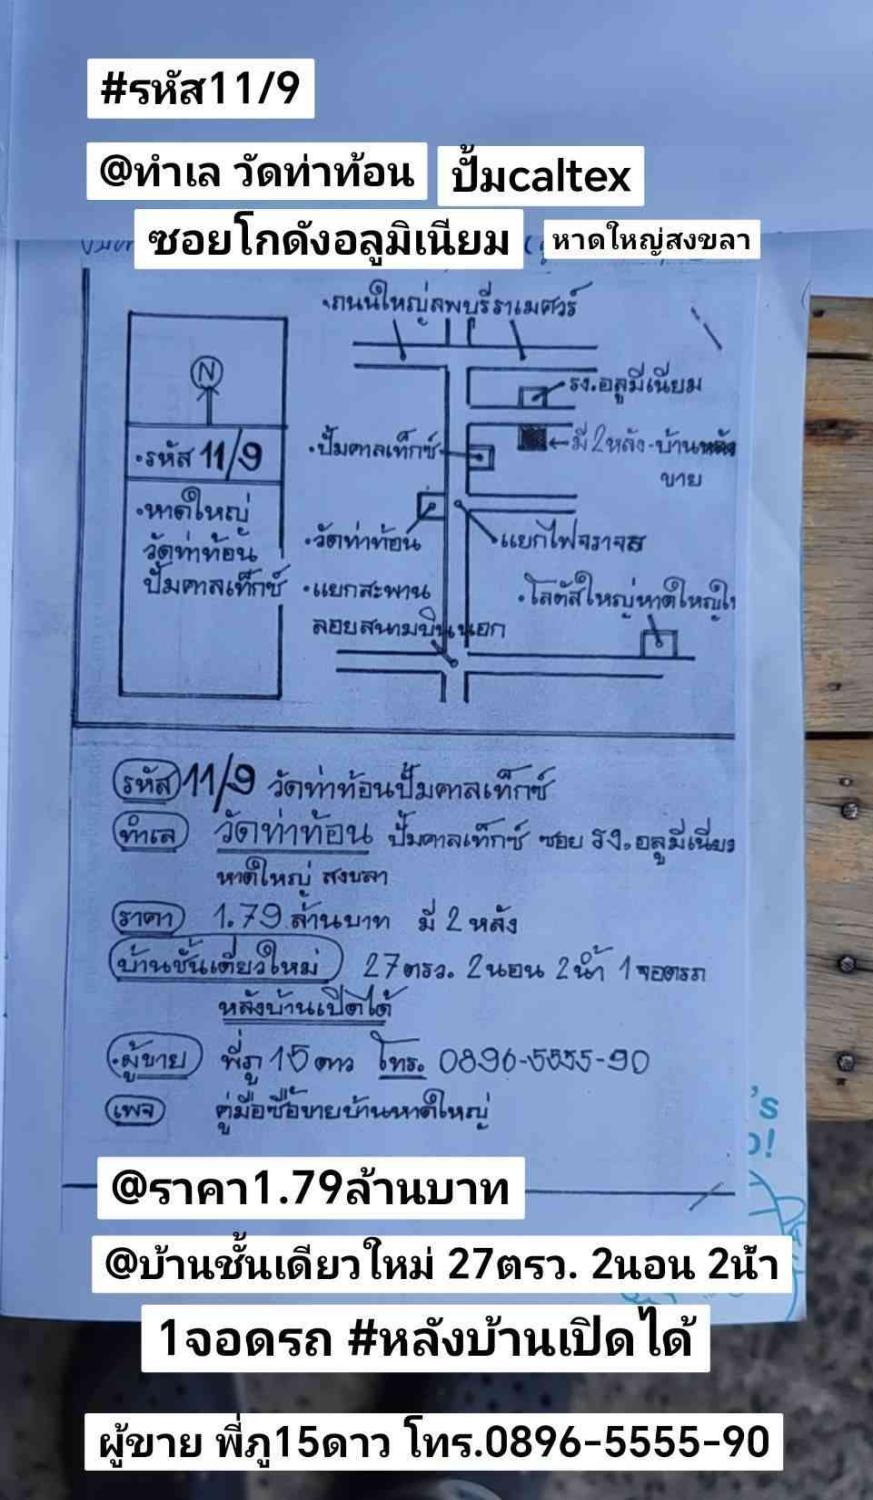 #รหัส11/9
@ทำเล วัดท่าท้อน ปั้มcaltex
ซอยโกดังอลูมิเนียม หาดใหญ่สงขลา
•ถนนใหญ่ลพบุรีราเมศวร์
N
•รหัส 11/9
•หาดใหญ่
วัดท่าท้อน
ปั้มคาลเท็กซ์
รง.อลูมีเนียม
•ปั้มคาลเท็กซ์
←มี 2หลัง-บ้านหลัง
ขาย
•วัดท่าท้อน
•แยกไฟจราจร
•แยกสะพาน
ลอยสนามบินนอก
•โลตัสใหญ่หาดใหญ่ใ
รหัส 11/9 วัดท่าท้อนปั้มคาลเท็กซ์
ทำเล วัดท่าท้อน ปั้มคาลเท็กซ์ ซอย รง.อลูมี่เนี่ยม
หาดใหญ่ สงขลา
ราคา 1.79 ล้านบาท มี 2 หลัง
บ้านชั้นเดี่ยวใหม่ 27ตรว. 2นอน 2น้ำ 1จอดรถ
หลังบ้านเปิดได้
•ผู้ขาย พี่ภู 15 ดาว โทร. 0896-5555-90
เพจ คู่มือซื้อขายบ้านหาดใหญ่
's
@ราคา1.79ล้านบาท
@บ้านชั้นเดียวใหม่ 27ตรว. 2นอน 2น้ำ
1จอดรถ #หลังบ้านเปิดได้
ผู้ขาย พี่ภู15ดาว โทร.0896-5555-90